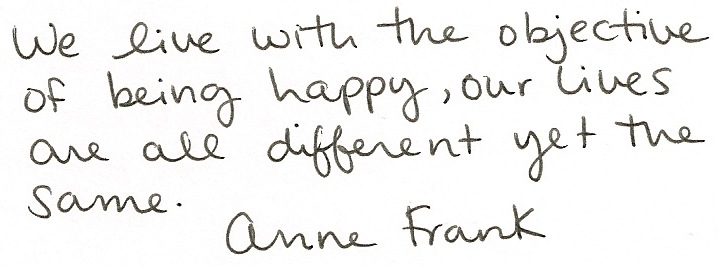 We live with the objective
of being happy, our lives
are all different yet the
same.
Anne Frank